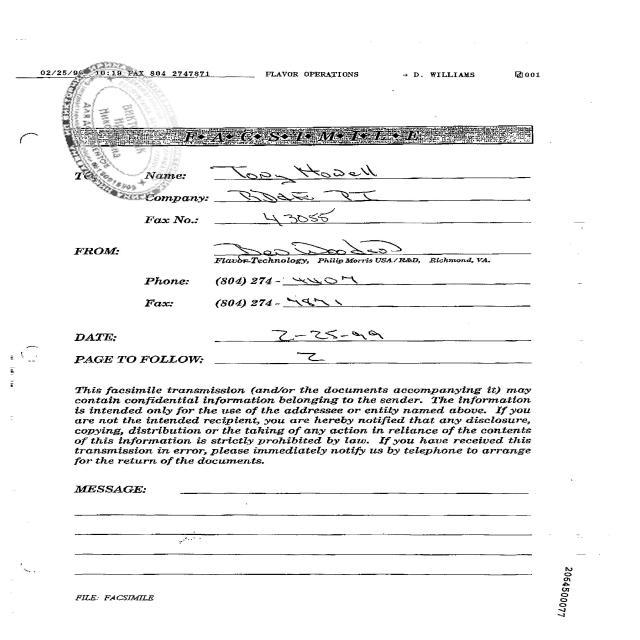 02/25/99 10:19 FAX 804 2747871 FLAVOR OPERATIONS → D. WILLIAMS 001
F•A•C•S•I•M•I•L•E
TO: Name: Tony Howell
Company:
Fax No.: 43055
FROM:
Flavor Technology, Philip Morris USA/R&D, Richmond, VA.
Phone: (804) 274 - 4407
Fax: (804) 274 - 7871
DATE: 2-25-99
PAGE TO FOLLOW: 2
This facsimile transmission (and/or the documents accompanying it) may
contain confidential information belonging to the sender. The information
is intended only for the use of the addressee or entity named above. If you
are not the intended recipient, you are hereby notified that any disclosure,
copying, distribution or the taking of any action in reliance of the contents
of this information is strictly prohibited by law. If you have received this
transmission in error, please immediately notify us by telephone to arrange
for the return of the documents.
MESSAGE:
FILE: FACSIMILE
2064500077